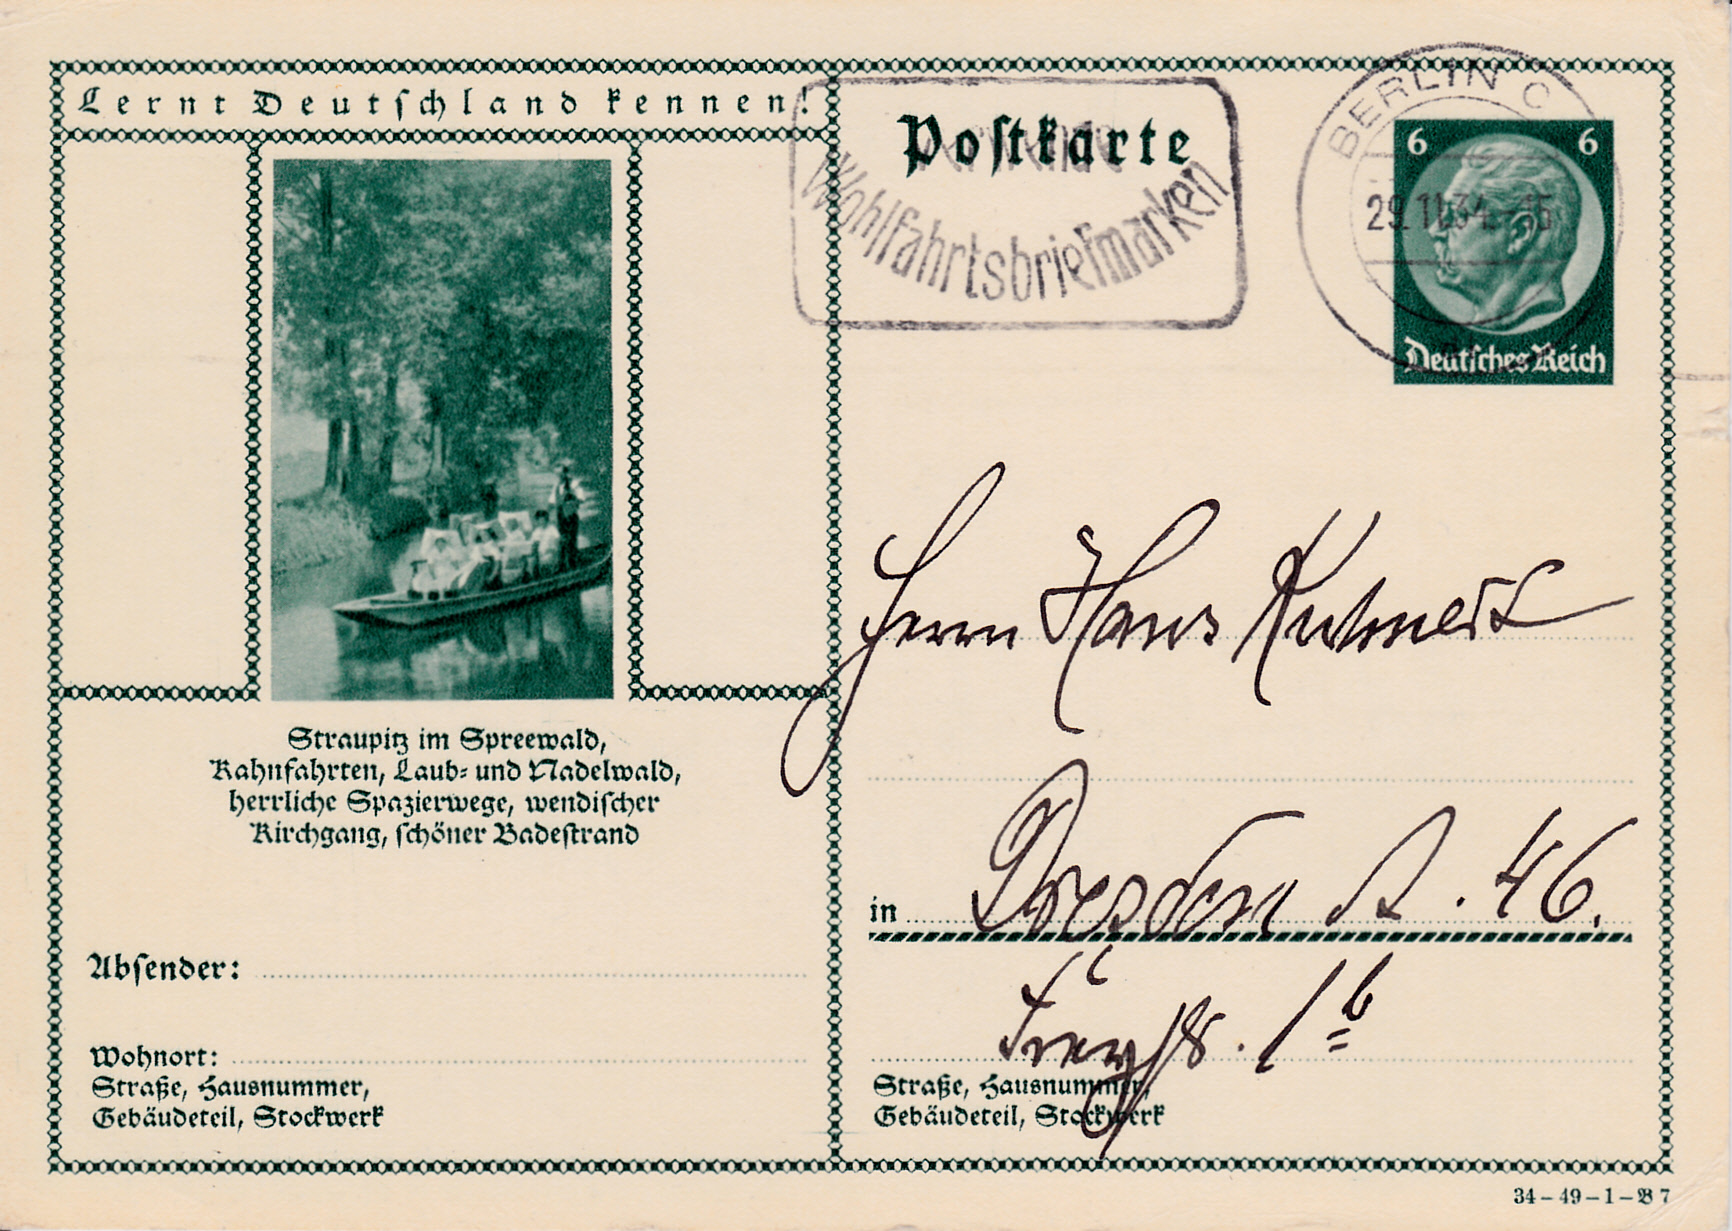 Lernt Deutschland kennen!
Postkarte
Wohlfahrtsbriefmarken
BERLIN C
29.11.34.-15
6 6
Deutsches Reich
Straupitz im Spreewald,
Kahnfahrten, Laub- und Nadelwald,
herrliche Spazierwege, wendischer
Kirchgang, schöner Badestrand
Absender:
Wohnort:
Straße, Hausnummer,
Gebäudeteil, Stockwerk
Herrn Hans
in Dresden A. 46.
1 b
Straße, Hausnummer,
Gebäudeteil, Stockwerk
34-49-1-B7